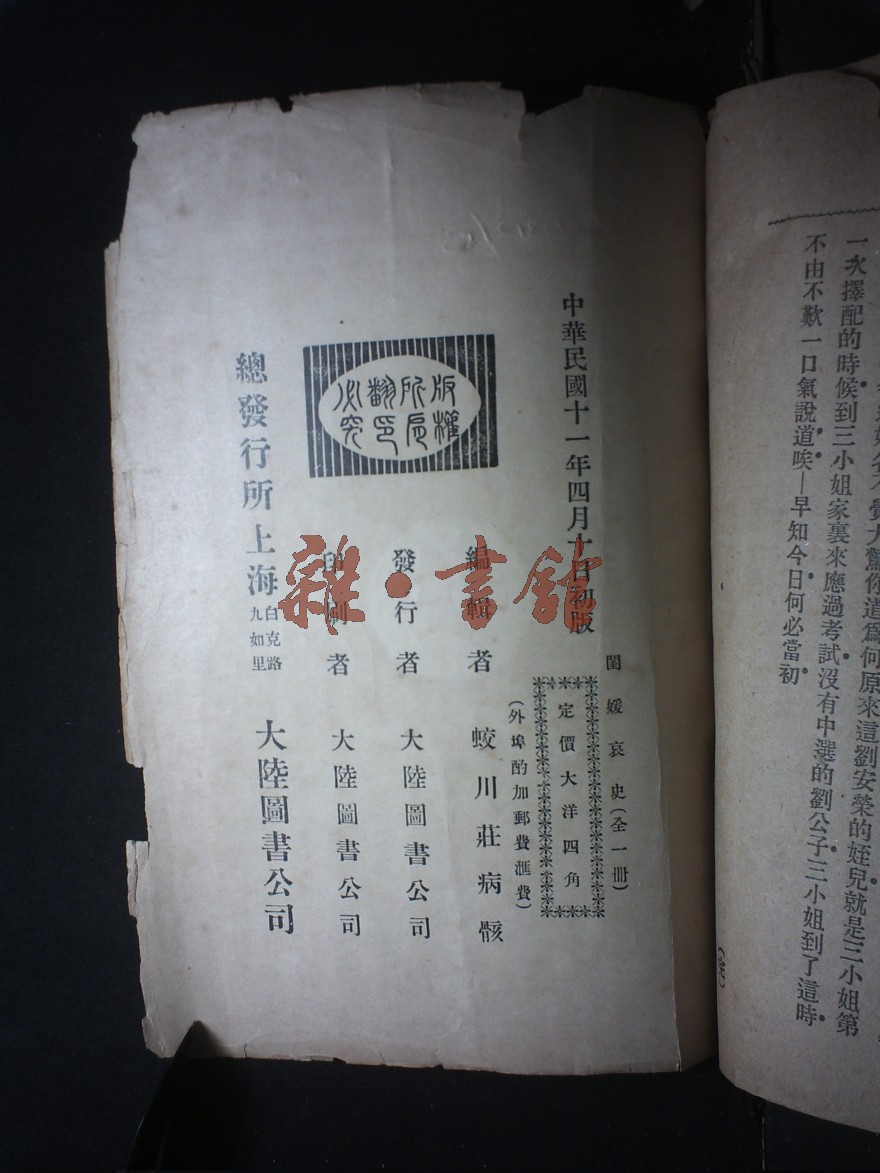 一次擇配的時候到三小姐家裏來應過考試沒有中選的劉公子三小姐到了這時
不由不歎一口氣說道唉—早知今日何必當初
中華民國十一年四月十日初版
閨媛哀史(全一冊)
定價大洋四角
(外埠酌加郵費滙費)
版權所有翻印必究
編輯者 蛟川莊病骸
發行者 大陸圖書公司
印刷者 大陸圖書公司
總發行所上海白克路九如里 大陸圖書公司
雜·書館